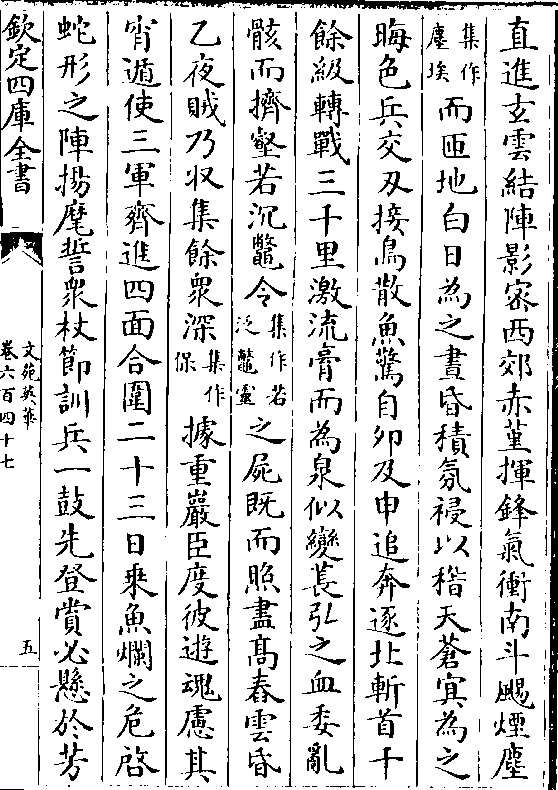 直進玄雲結陣影宻西郊赤堇揮鋒氣衝南斗颺煙塵
集作塵埃而匝地白日為之晝昏積氛祲以稽天蒼㝠為之
晦色兵交刃接鳥散魚驚自夘及申追奔逐北斬首十
餘級轉戰三千里激流膏而為泉似變萇弘之血委亂
骸而擠壑若沉鼈令集作若泛鼈靈之屍既而照盡髙舂雲昏
乙夜賊乃収集餘衆深集作保據重巖臣度彼遊魂慮其
宵遁使三軍齊進四面合圍二十三日乗魚爛之危啓
蛇形之陣揚麾誓衆杖節訓兵一鼓先登賞必懸於芳
欽定四庫全書
文苑英華
卷六百四十七
五